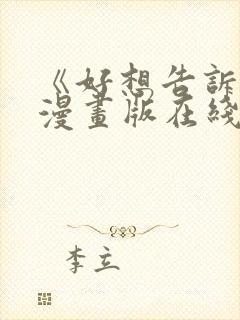 《好想告訴
漫畫版在綫
李立